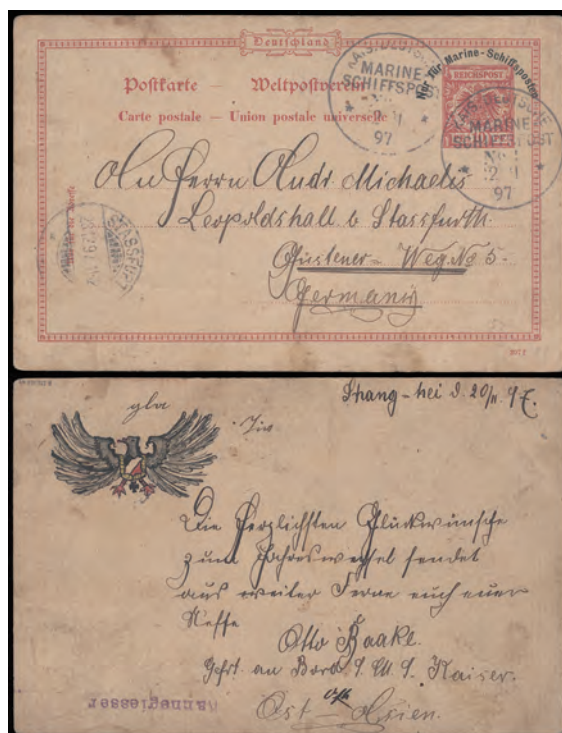 Deutschland
Postkarte — Weltpostverein
Carte postale — Union postale universelle
Nur für Marine-Schiffsposten
REICHSPOST
KAIS. DEUTSCHE
MARINE-
SCHIFFSPOST
97
KAIS. DEUTSCHE
MARINE-
SCHIFFSPOST
No 1
97
An Herrn Andr. Michaelis
Leopoldshall b Stassfurth.
Güstener- Weg. No 5.
Germany
STASSFURT
Shang-hei d. 20/11. 97.
Die herzlichsten Glückwünsche
zum Jahreswechsel sendet
aus weiter Ferne euch euer
Neffe
Otto Baake.
Gefrt. an Bord S. M. S. Kaiser.
Ost-Asien.
Kannegiesser